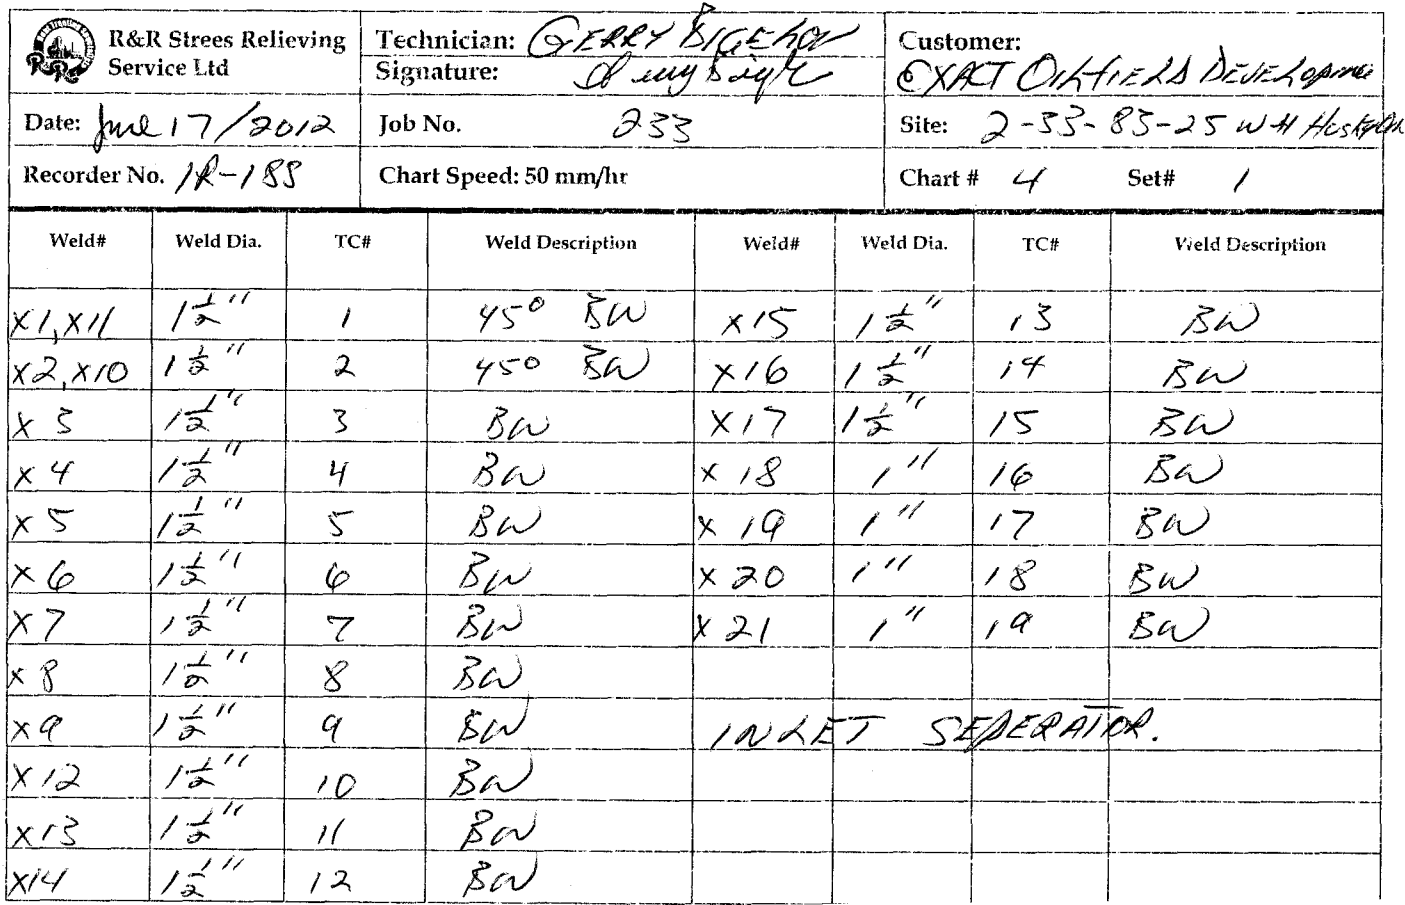 R&R Strees Relieving Service Ltd
Technician: GERRY BIGELOW
Signature:
Customer: EXACT OILFIELD DEVELOPME
Date: June 17/2012
Job No. 233
Site: 2-33-83-25 W4 Husky
Recorder No. 1R-188
Chart Speed: 50 mm/hr
Chart # 4 Set# 1
Weld# Weld Dia. TC# Weld Description Weld# Weld Dia. TC# Weld Description
X1,X11 1 1/2" 1 45° BW X15 1 1/2" 13 BW
X2,X10 1 1/2" 2 45° BW X16 1 1/2" 14 BW
X 3 1 1/2" 3 BW X17 1 1/2" 15 BW
X 4 1 1/2" 4 BW X 18 1" 16 BW
X 5 1 1/2" 5 BW X 19 1" 17 BW
X 6 1 1/2" 6 BW X 20 1" 18 BW
X 7 1 1/2" 7 BW X 21 1" 19 BW
X 8 1 1/2" 8 BW
X 9 1 1/2" 9 BW INLET SEPERATOR.
X 12 1 1/2" 10 BW
X13 1 1/2" 11 BW
X14 1 1/2" 12 BW